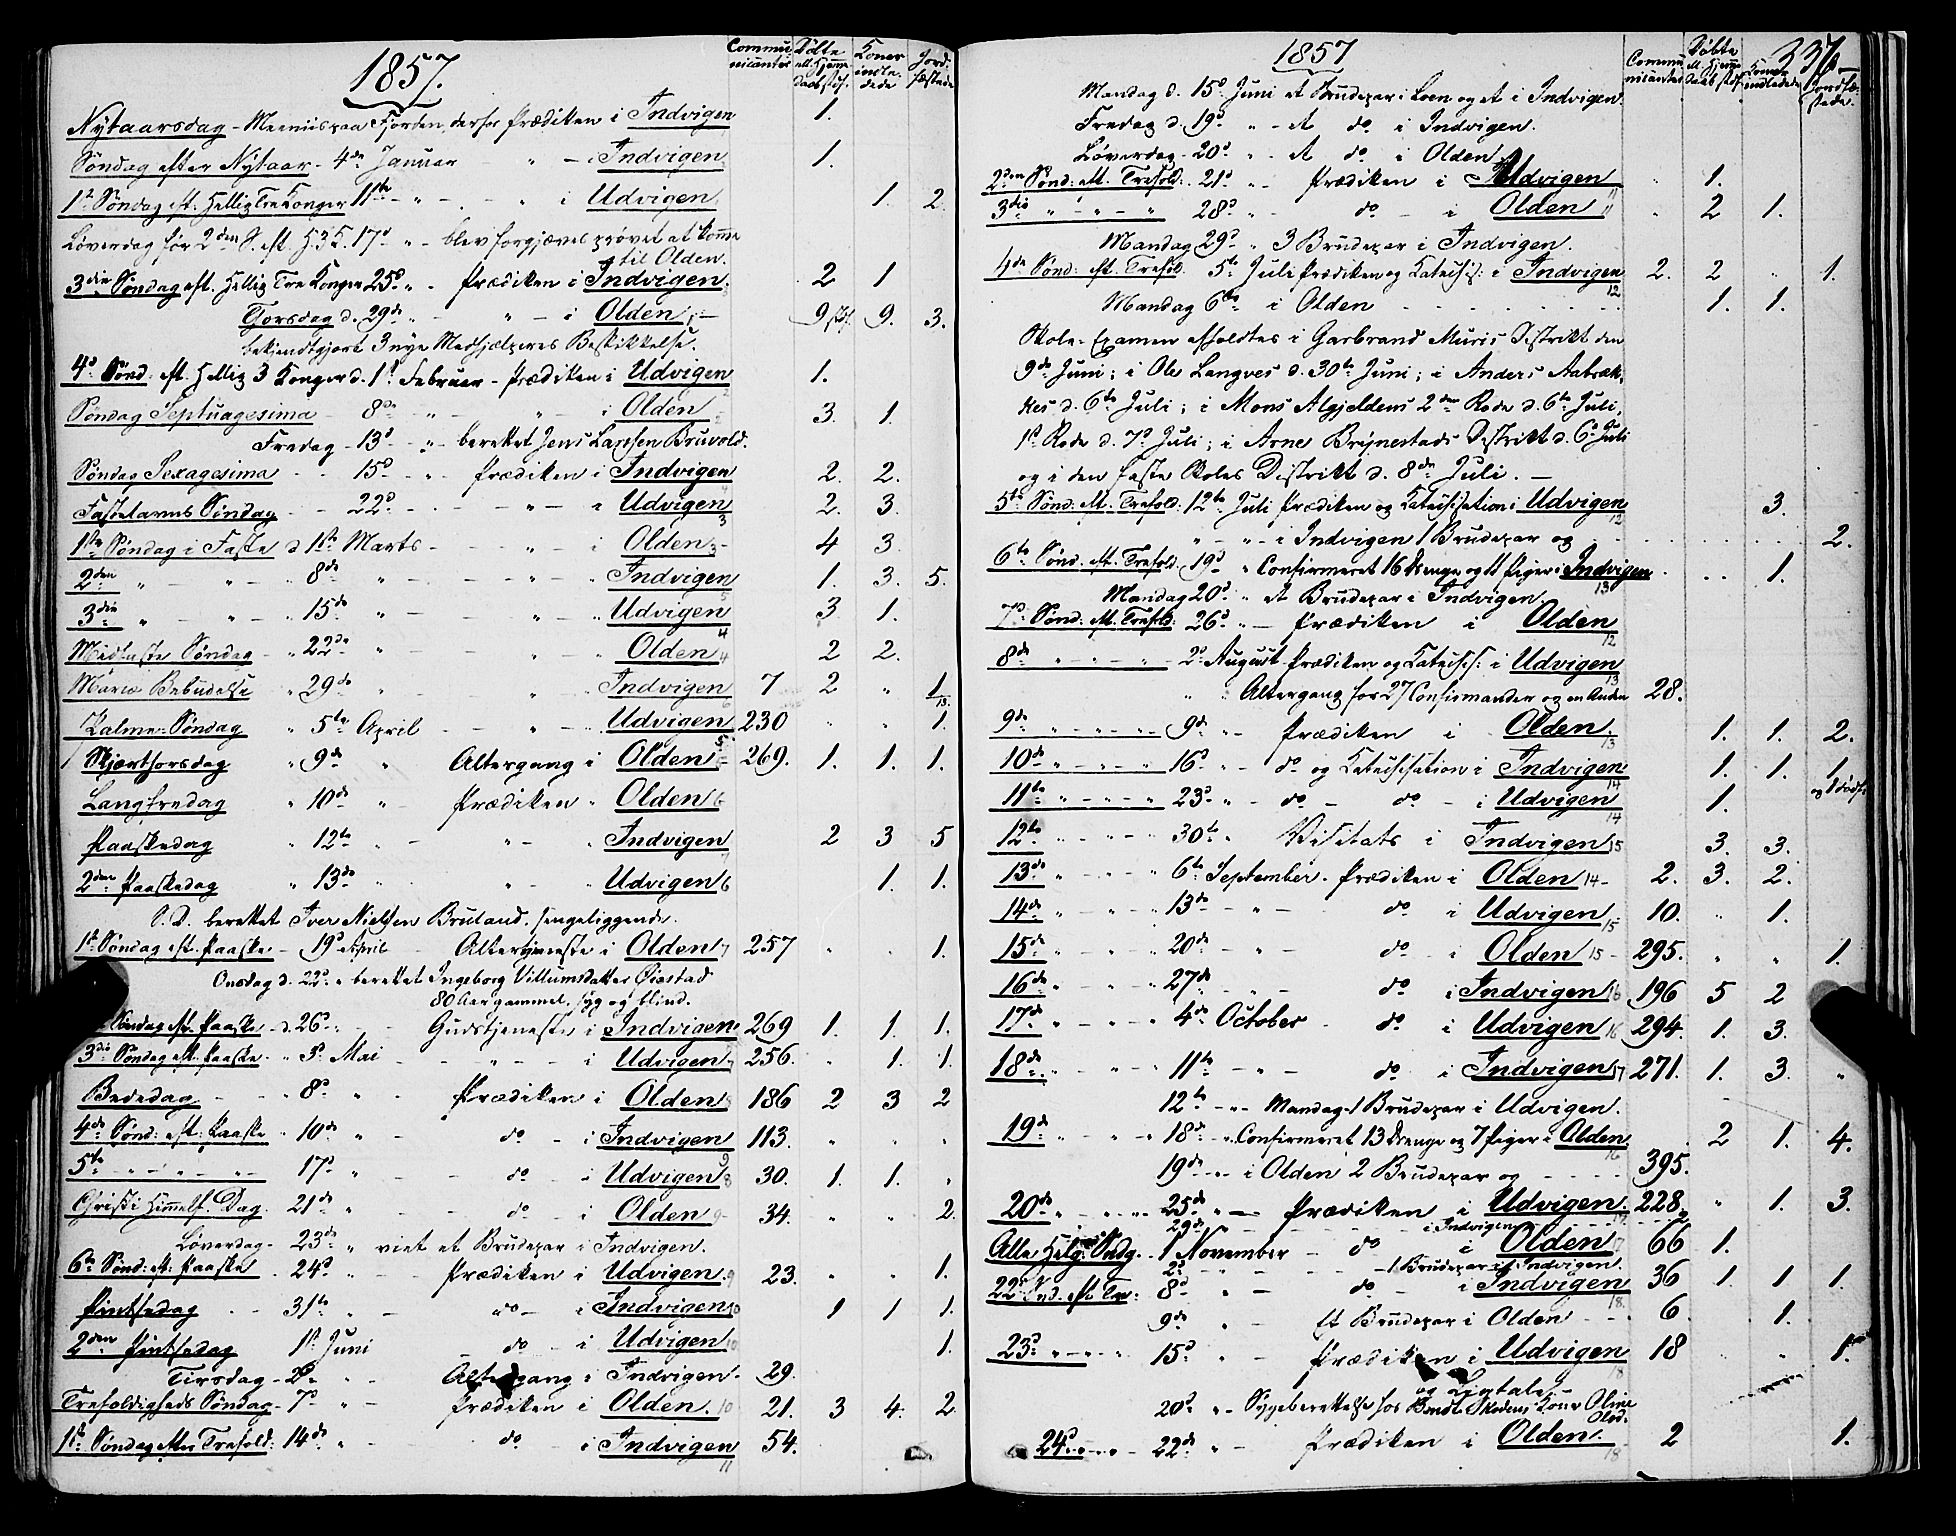 1857.
Commu nicanter
Døbte ell. Hjemme daab stdf.
Koner indle- dede
Jord- fæstede
Nytaarsdag - Meeniis paa Fjorden, derfor Prædiken i Indvigen 1.
Søndag efter Nytaar - 4de Januar - " - i Indvigen 1.
1ste Søndag eft. Hellig Tre Konger 11te - " - " - i Udvigen 1. 2.
Løverdag før 2den S. eft. H. 3 K. 17d " - blev forgjæves prøvet at komme
til Olden.
3die Søndag eft. Hellig Tre Konger 25d " - Prædiken i Indvigen. 2 1
Torsdag d. 29de " - " - i Olden 9 stdf. 9. 3.
bekjendtgjort 3 nye Medhjælperes Beskikkelse.
4d Sønd. eft. Hellig 3 Konger d. 1st Februar - Prædiken i Udvigen 1.
Søndag Septuagesima - 8de - " - " - i Olden 3. 1.
Fredag - 13d - " berettet Jens Larsen Bruvold.
Søndag Sexagesima - 15d - " - Prædiken i Indvigen 2. 2.
Fastelavns Søndag - 22d - " - " Udvigen 3 2. 3.
1ste Søndag i Faste d. 1ste Marts - " - i Olden 3 - 4 3.
2den " - " - " 8de " - " - Indvigen 1. 3. 5.
3die " - " - " 15de " - " - " Udvigen 3 1.
Midfaste Søndag - " 22de " " Olden 4 2 2.
Mariæ Bebudelse " 29de " " Indvigen 7 2 " 1
Palme-Søndag " 5te April - " - Udvigen 230 " " 1.
Skjærtorsdag " 9de " Altergang i Olden 269. 1. 1. 1.
Langfredag " 10de " Prædiken " Olden 6
Paaskedag " 12te " - " - " Indvigen 2 3 5
2den Paaskedag " 13de " " - " Udvigen 6 1. 1.
S. D. berettet Iver Nielsen Bruland, sengeliggende.
1ste Søndag eft. Paaske - 19d April - Altertjeneste i Olden 7 257 " " 1.
Onsdag d. 22d " berettet Ingeborg Villumsdatter Øiestad
80 Aar gammel, syg og blind.
Søndag eft. Paaske - d. 26d " Gudstjeneste i Indvigen 269 1. 1. 1.
3die Søndag eft. Paaske - " 3d Mai - - " - - i Udvigen 256. " 1. 1.
Bededag - " 8d " " Prædiken i Olden 186 2 3 2
4de Sønd: eft: Paaske " 10de " - do - i Indvigen 113. " " "
5te " - " - " 17d " - do - " Udvigen 8 30. 1. 1. "
Christi Himmelf. Dag. 21de " - do - i Olden 9 - 34. " " 2.
Løverdag - 23de " viet et Brudepar i Indvigen.
6te Sønd: eft: Paaske - 24d " - Prædiken i Udvigen. 9 23. " " 1.
Pintsedag - 31te " - do - i Indvigen 10 1 1 1.
2den Pintsedag 1st Juni - do - i Udvigen 10 1.
Tirsdag - 2d " - Altergang i Indvigen - 29.
Trefoldigheds Søndag - 7d " - Prædiken i Olden. 10 21. 3 4. 2
1ste Søndag efter Trefold: 14de " - do - i Indvigen 54.
11
1857
337.
Commu- nicanter
Døbte ell. Hjemme daab stdf.
Koner indledede
Jordfæ- stede.
Mandag d. 15d Juni et Brudepar i Loen og et i Indvigen.
Fredag d. 19d " - Et do i Indvigen.
Løverdag - 20d " - Et do i Olden.
2den Sønd: eft. Trefold: 21d " - Prædiken i Udvigen " 1.
3die " - " - " 28d " - do - i Olden " 2 1.
Mandag 29d " 3 Brudepar i Indvigen.
4de Sønd: eft. Trefold. 5te Juli Prædiken og Katechis: i Indvigen 2. 2 " 1.
Mandag 6te i Olden - - - - 1. 1.
Skole-Examen afholdtes i Garbrand Muris Distrikt den
9de Juni; i Ole Langves d. 30te Juni; i Anders Aabræk-
kes d. 6te Juli; i Mons Algjeldens 2den Rode d. 6te Juli,
1ste Rode d. 7d Juli; i Arne Brynestads Distrikt d. 6d Juli
og i den faste Skoles Distrikt d. 8de Juli. -
5te Sønd. eft. Trefold. 12te Juli Prædiken og Katechisation i Udvigen 3.
" - " - i Indvigen 1 Brudepar og - - - - 2.
6te Sønd. eft. Trefold. 19d " Confirmeret 16 Drenge og 11 Piger i Indvigen 1.
Mandag 20d " et Brudepar i Indvigen.
7d Sønd. eft. Trefold: 26d " - Prædiken i Olden
8de " - " - " 2d August Prædiken og Katechis: i Udvigen
" " Altergang for 27 Confirmander og en Anden 28.
9de " - " - " 9de " - Prædiken i Olden. 1. 1. 2.
10de " - " - " 16d " - do og Katechisation i Indvigen 1. 1. 1
11te " - " - " 23d " - do - do - i Udvigen 1. og 1 dødf:
12te " - " - " 30te " Visitats i Indvigen 15 3. 3.
13de " - " - " 6te September - Prædiken i Olden 14 - 2. 3. 2.
14de " - " - " 13de " - do i Udvigen 15 10. " 1.
15de " - " - " 20de " - do - i Olden 15 - 295. " " 1.
16de " - " - " 27de " do i Indvigen 16 196 5 2
17de " - " - " 4de October - do i Udvigen 16 294. 1. 3.
18de " - " - " 11te " - do i Indvigen 17 271. 1. 3. "
12te " - Mandag - 1 Brudepar i Udvigen.
19de " - " - " 18de " Confirmeret 13 Drenge og 7 Piger i Olden 2 1. 4.
19de " - i Olden 2 Brudepar og - - - - 395.
20de " - " - 25de " - Prædiken i Udvigen. 228. " 1. 3.
29de - - - i Indvigen
Alle Helg: Sndg. - 1 November - do i Olden 17 66 1.
2d - - - 1 Brudepar i Indvigen.
22d Snd. eft. Tre: 8d " - do - i Indvigen 36 1 1 1.
9de " Et Brudepar i Olden - - - 6 1.
23d " - " - 15d " - Prædiken i Udvigen 18 " " 1.
og Ligtale -
20d " - Sygeberettelse hos Bendt Skedens Kone Oline
Olsd.
24d " - " - 22de " - Prædiken i Olden. 2 1.
18